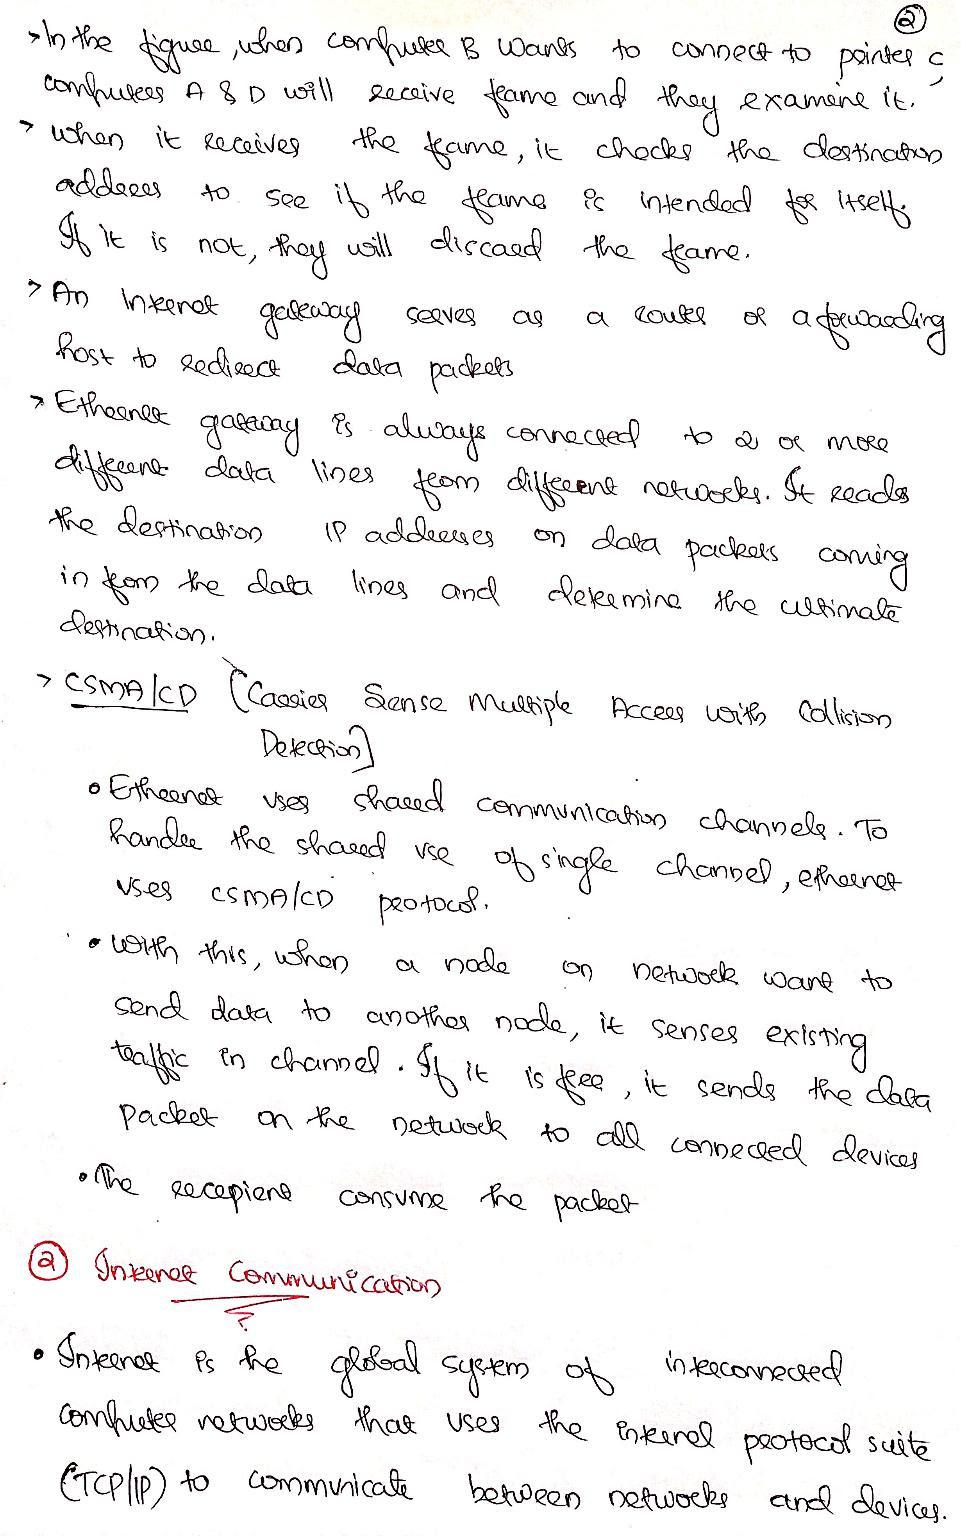 ②
> In the figure, when computer B wants to connect to printer C,
computers A & D will receive frame and they examine it.
> when it receives the frame, it checks the destination
address to see if the frame is intended for itself.
If it is not, they will discard the frame.
> An Internet gateway serves as a router or a forwarding
host to redirect data packets
> Ethernet gateway is always connected to 2 or more
different data lines from different networks. It reads
the destination IP addresses on data packets coming
in from the data lines and determine the ultimate
destination.
> CSMA/CD (Carrier Sense Multiple Access with Collision
Detection]
• Ethernet uses shared communication channels. To
handle the shared use of single channel, ethernet
uses CSMA/CD protocol.
• With this, when a node on network want to
send data to another node, it senses existing
traffic in channel. If it is free, it sends the data
packet on the network to all connected devices
• The recepient consume the packet
② Internet Communication
• Internet is the global system of interconnected
computer networks that uses the internet protocol suite
(TCP/IP) to communicate between networks and devices.